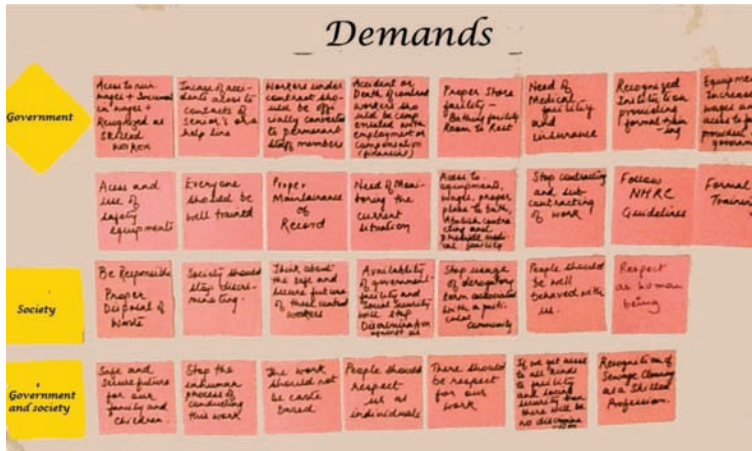 Demands
Government
Access to min
wages + Increment
in wages +
Recognized as
Skilled
worker
Incase of acci-
dents access to
contacts of
Senior's or a
help line
Workers under
contract sho-
uld be offi-
cially converted
to permanent
staff members
Accident or
Death of contract
workers sho
uld be comp
ensated with
employment or
compensation
(financial)
Proper Store
facility -
Bathing facility
Room to Rest
Need of
Medical
facility
and
insurance
Recognized
Institution
providing
formal train
-ing
Equipme
Increase
wages a
access to fa
provided
governm
Access and
use of
safety
equipments
Everyone
should be
well trained
Proper
Maintainance
of
Record
Need of Moni-
toring the
current
situation
Access to
equipments,
wage, proper
place to bath,
Abolish contra
cting and
provide medi
cal facility
Stop contracting
and sub-
contracting
of work
Follow
NHRC
Guidelines
Format
Trainin
Society
Be Responsible
Proper
Disposal of
Waste
Society should
stop discri-
minating.
Think about
the safe and
secure future
of these contract
workers
Availability
of government
facility and
Social Security
will stop
Discrimination
against us
Stop usage
of derogatory
term associated
with a parti
cular
community
People should
be well
behaved with
us.
Respect
as human
being
Government
and society
Safe and
Secure future
for our
family and
children.
Stop the
inhuman
process of
conducting
this work
The work
should not
be caste
based
People should
respect
us as
individuals
There should
be respect
for our
work
If we get access
to all kinds
of facility
and social
security then
there will be
no discrimina
-tion
Recognition of
Sewage Cleaning
as a Skilled
Profession.